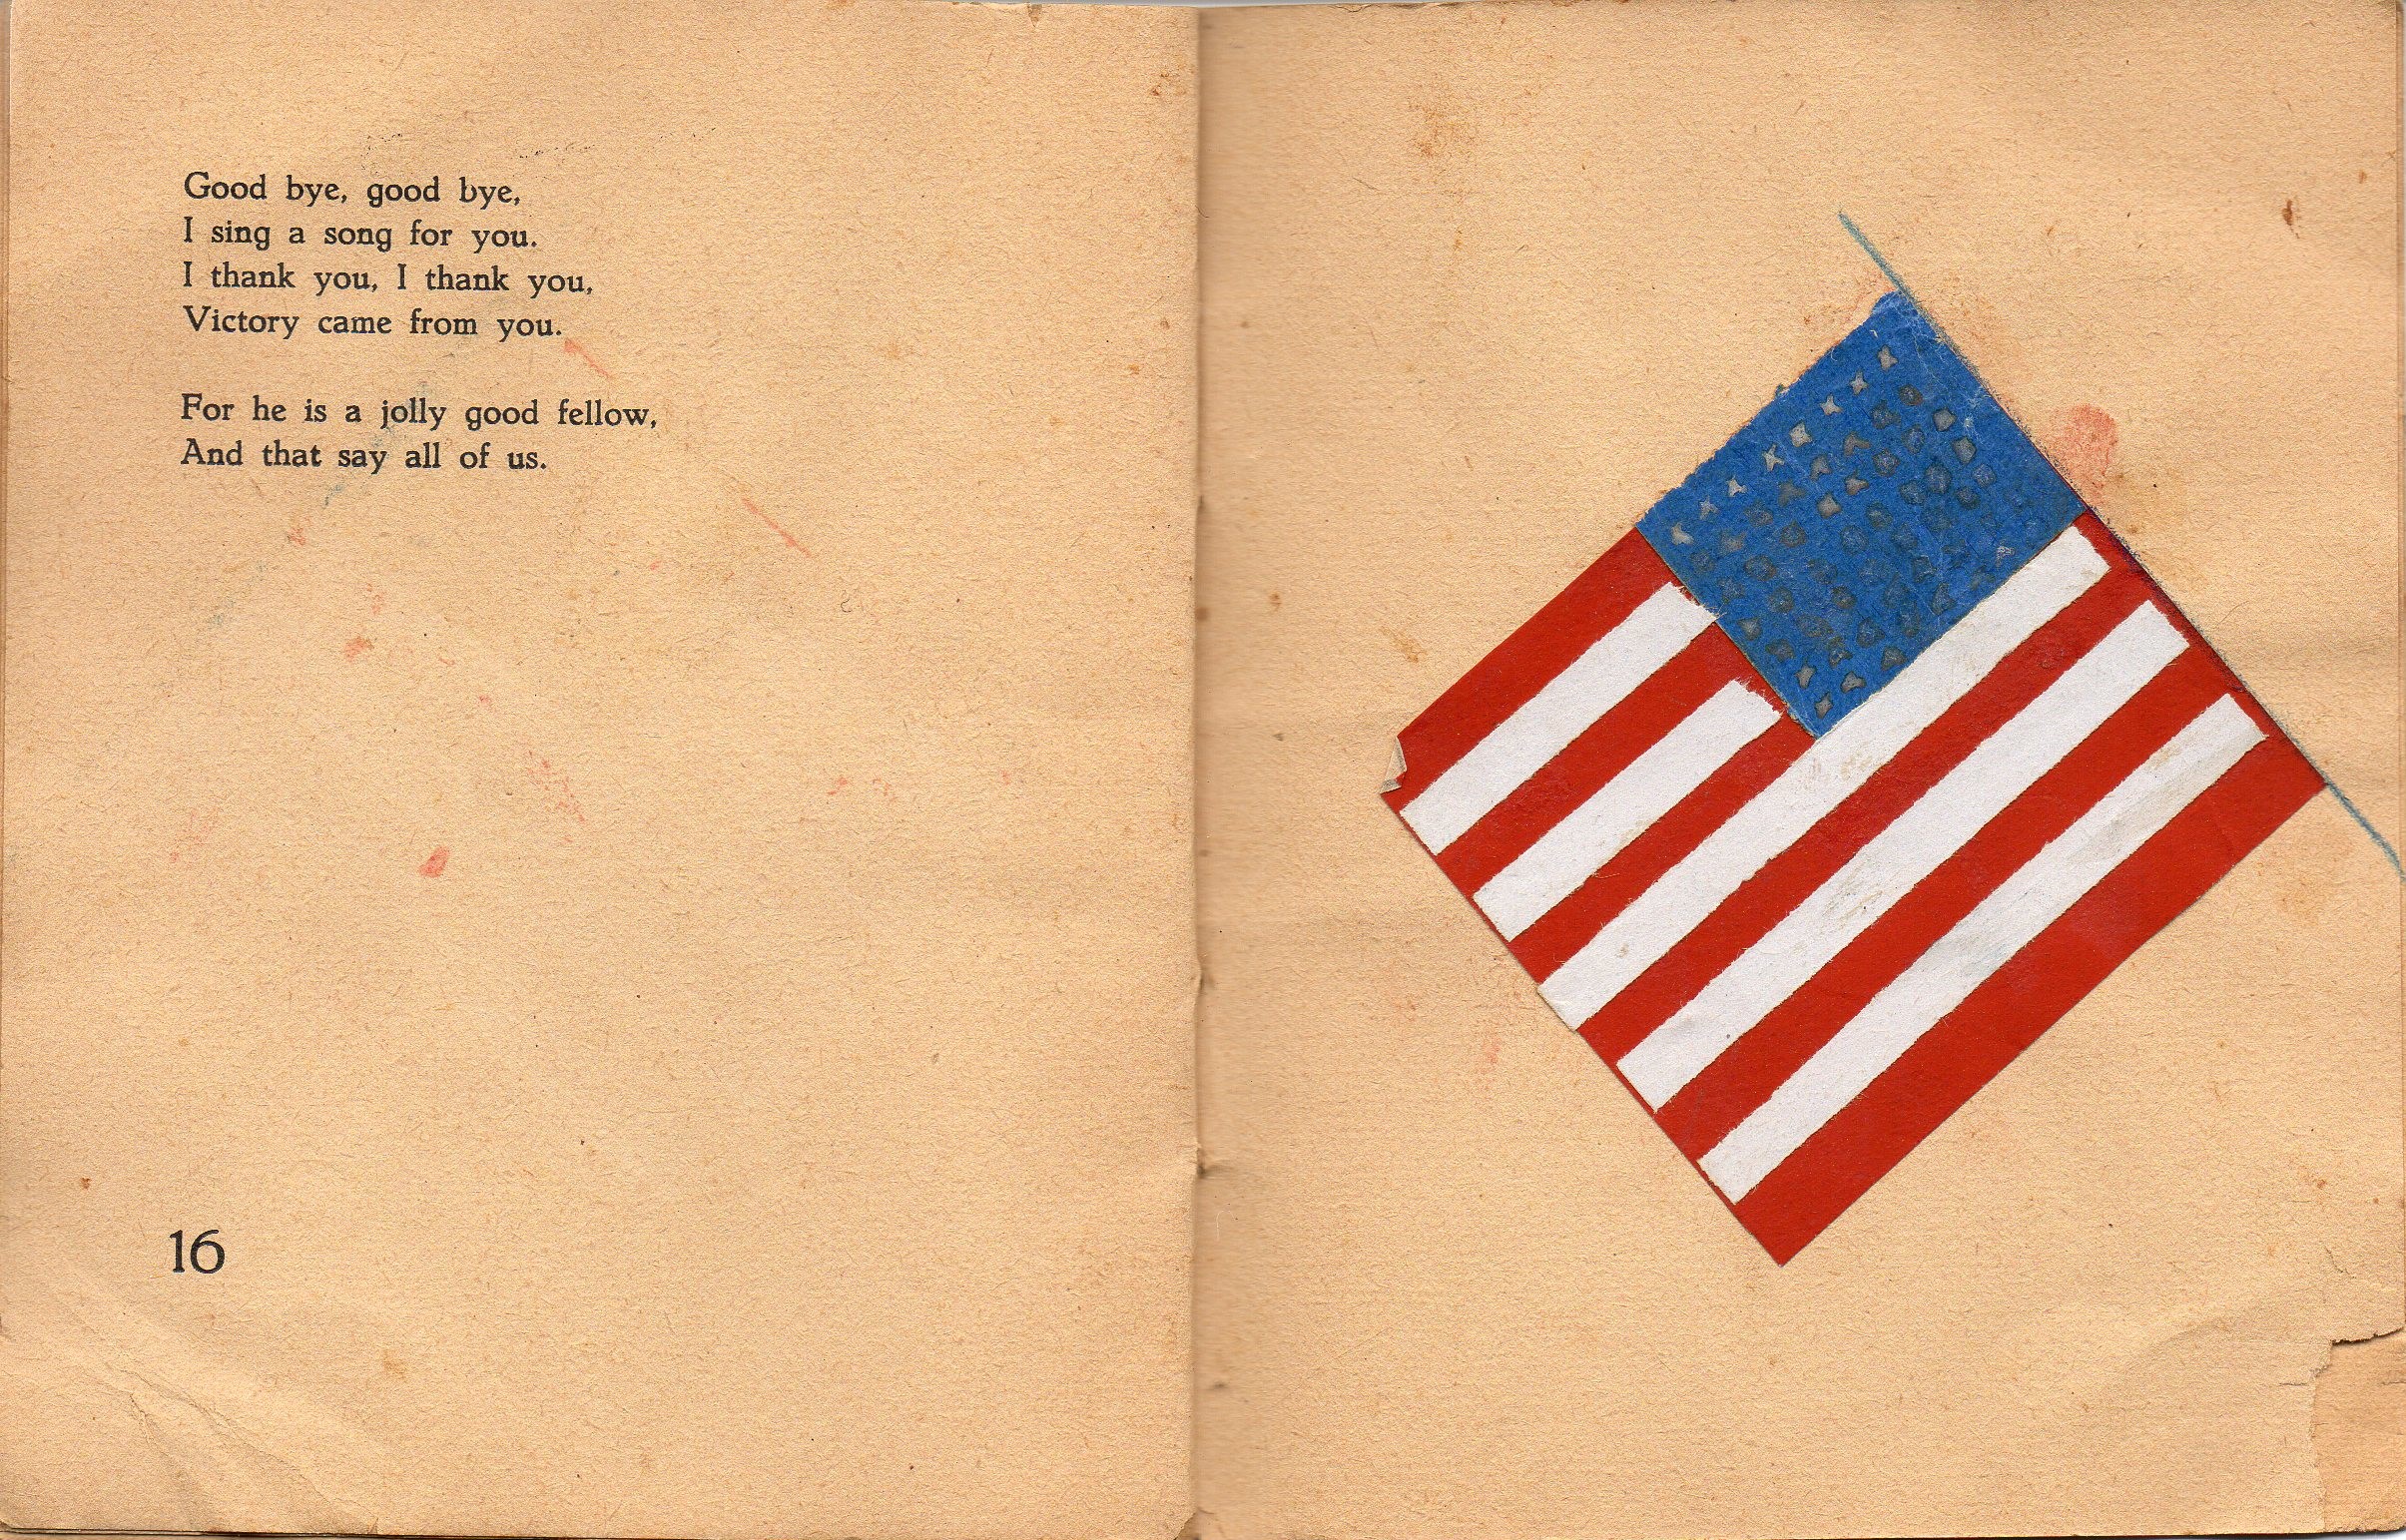 Good bye, good bye,
I sing a song for you.
I thank you, I thank you,
Victory came from you.
For he is a jolly good fellow,
And that say all of us.
16